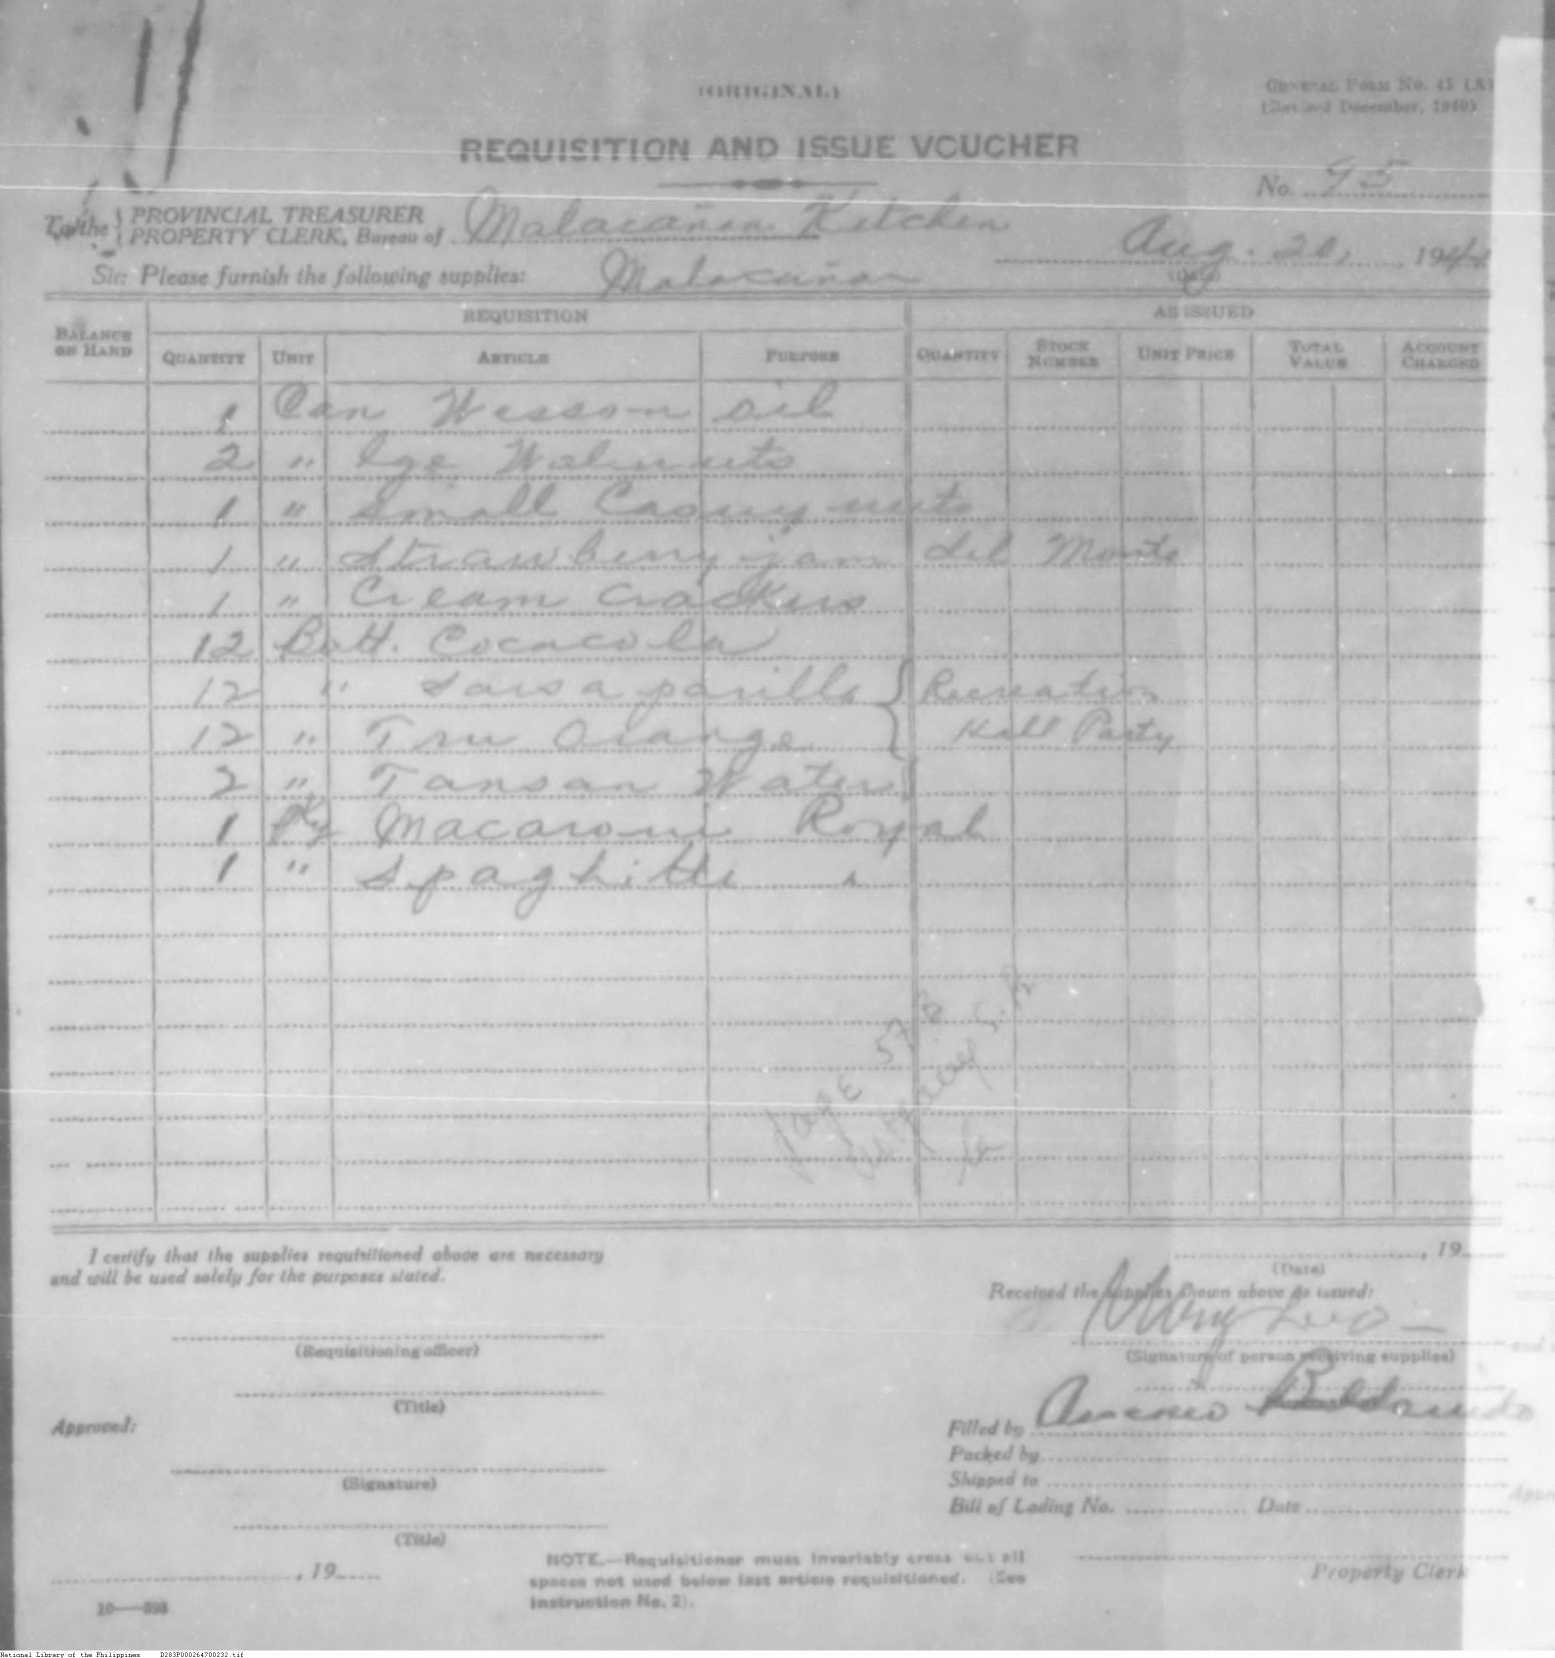 (ORIGINAL)
GENERAL FORM No. 45 (A)
(Revised December, 1940)
REQUISITION AND ISSUE VOUCHER
No. 95
To the { PROVINCIAL TREASURER
PROPERTY CLERK, Bureau of Malacañan Kitchen
Aug. 20, 1944
(Date)
Sir: Please furnish the following supplies: Malacañan
BALANCE ON HAND
REQUISITION
AS ISSUED
QUANTITY UNIT ARTICLE PURPOSE QUANTITY STOCK NUMBER UNIT PRICE TOTAL VALUE ACCOUNT CHARGED
1 Can Wesson oil
2 " lge Walnuts
1 " small Casuy nuts
1 " Strawberry jam del Monte
1 " Cream crackers
12 Bott. Cococola
12 " Sarsaparilla } Recreation
12 " Tru Orange } Hall Party
2 " Tansan Water
1 Pkg Macaroni Royal
1 " Spaghitti "
Page 57
I certify that the supplies requisitioned above are necessary
and will be used solely for the purposes stated.
(Requisitioning officer)
(Title)
Approved:
(Signature)
(Title)
, 19
10—898
NOTE.—Requisitioner must invariably cross out all
spaces not used below last article requisitioned. (See
Instruction No. 2).
, 19
(Date)
Received the supplies shown above as issued:
(Signature of person receiving supplies)
Filled by
Packed by
Shipped to
Bill of Lading No. Date
Property Clerk
National Library of the Philippines D283P000264700232.tif